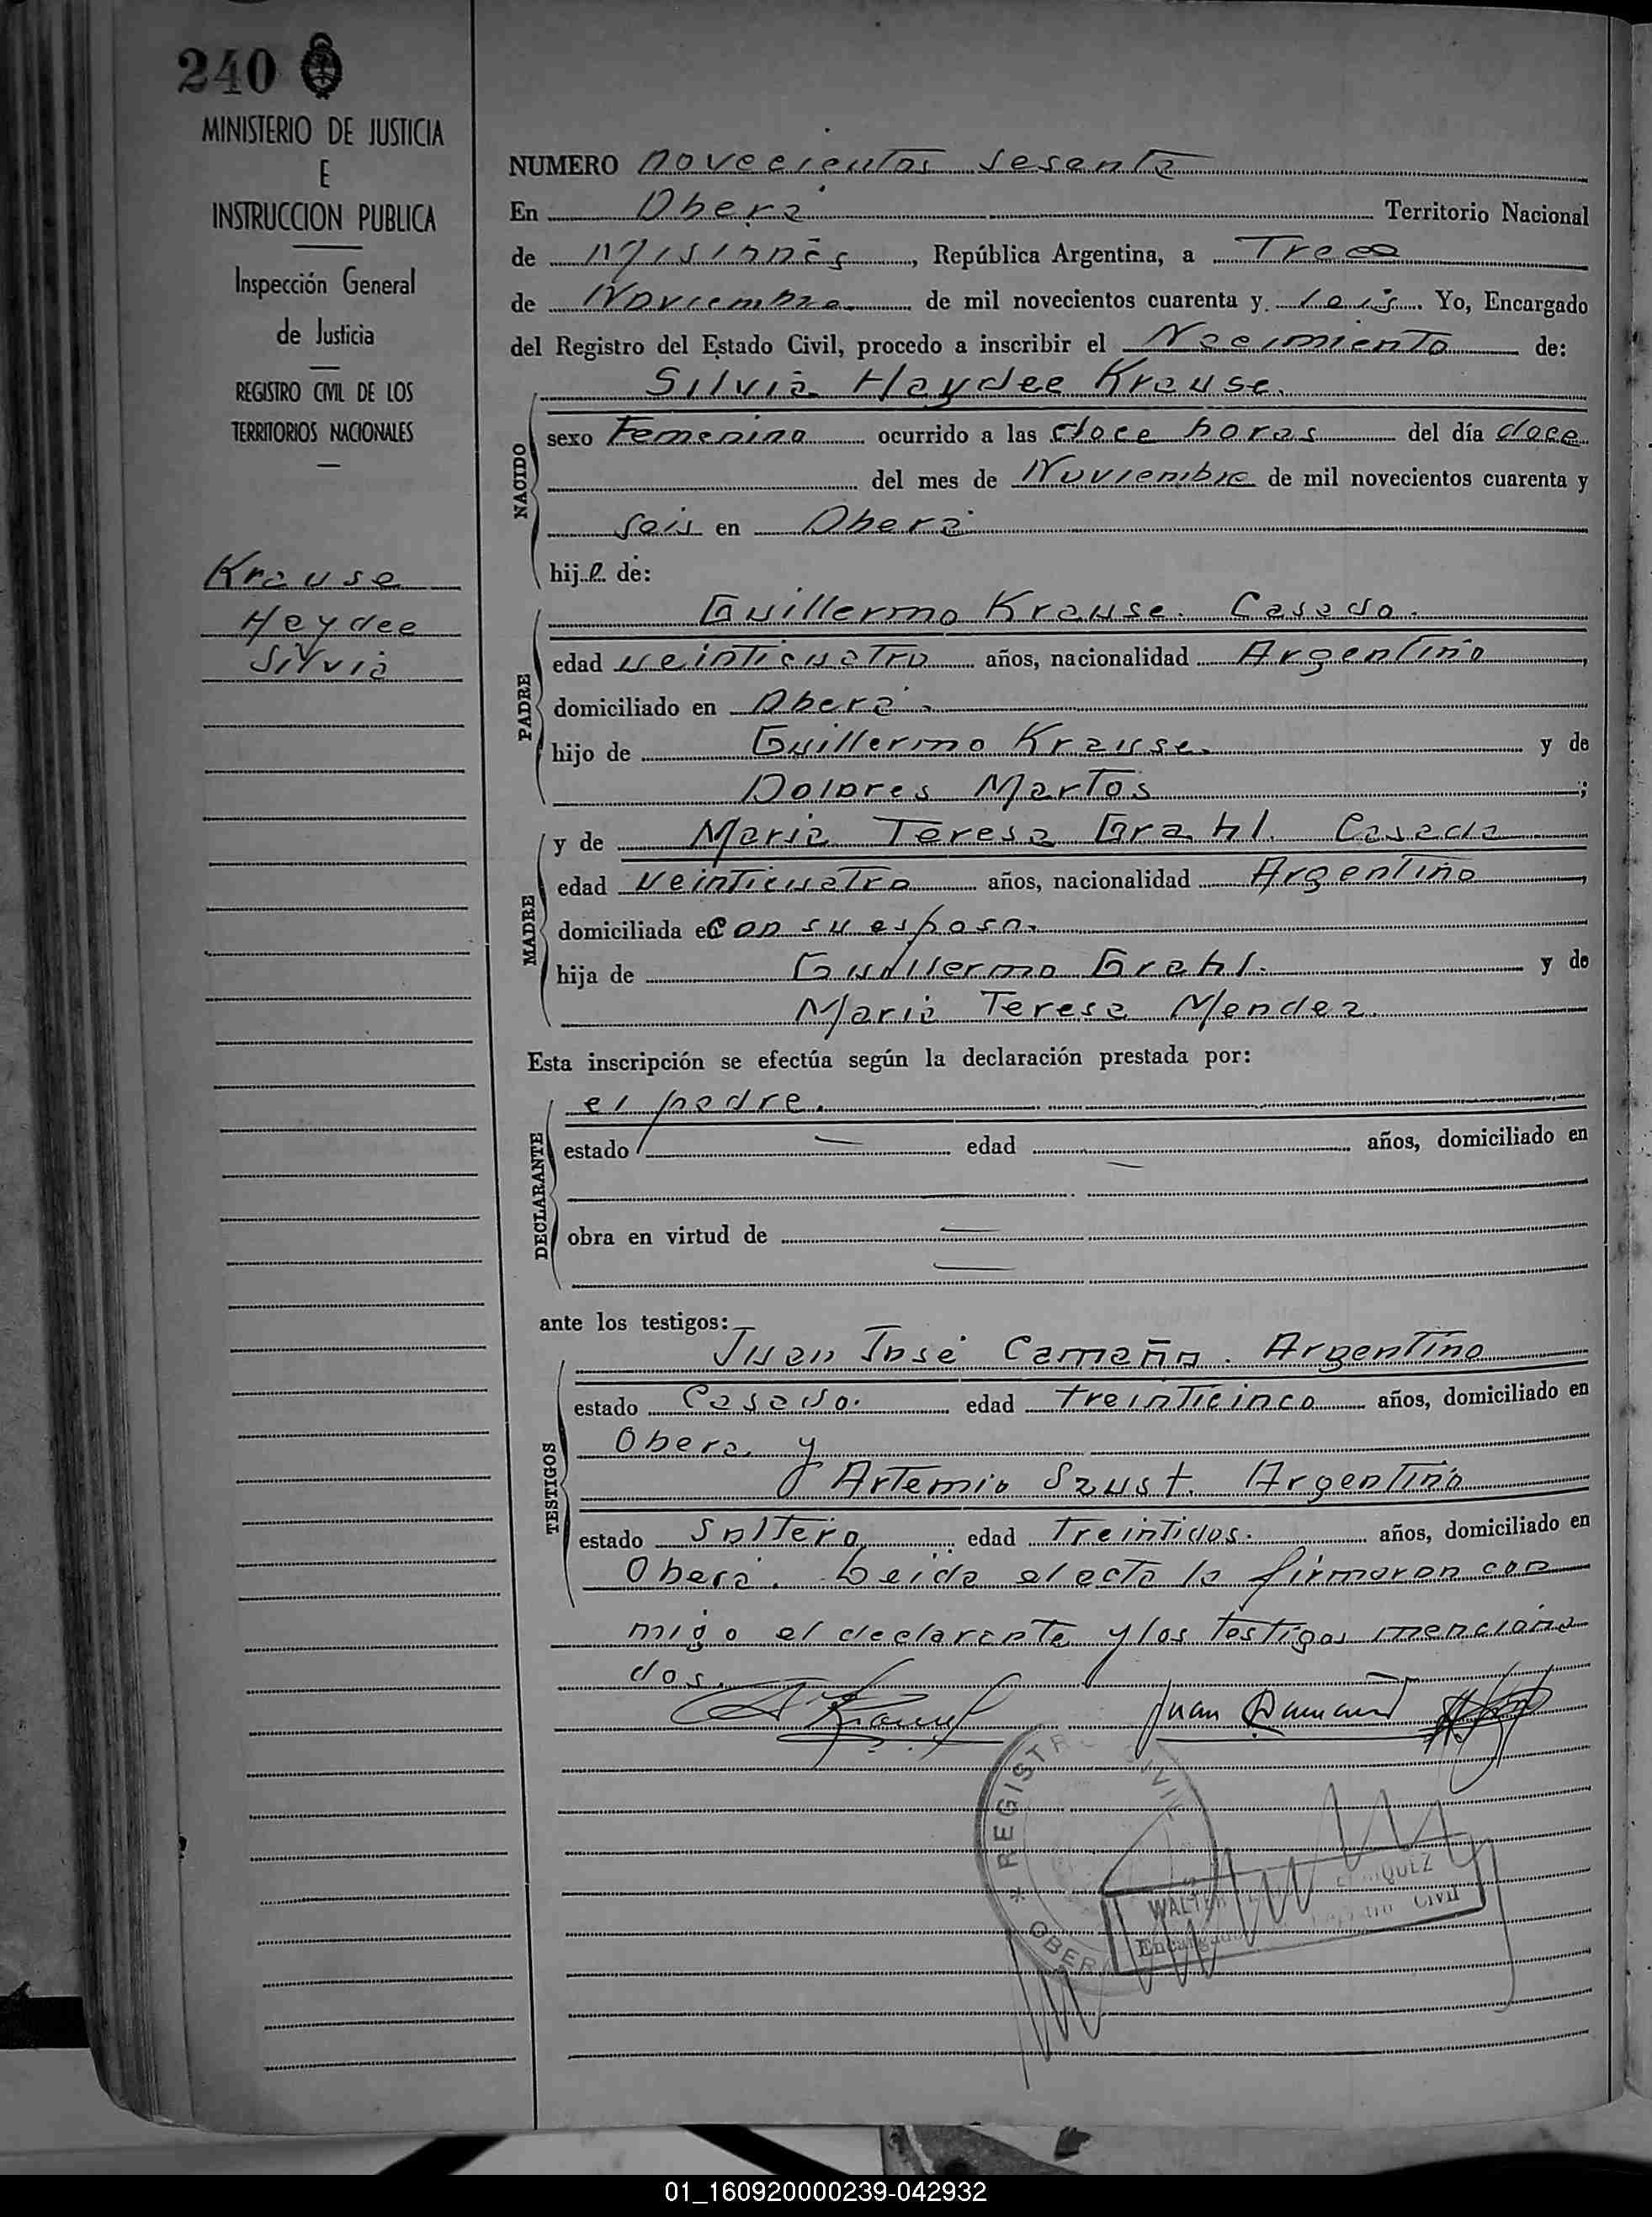 240
MINISTERIO DE JUSTICIA
E
INSTRUCCION PUBLICA
Inspección General
de Justicia
REGISTRO CIVIL DE LOS
TERRITORIOS NACIONALES
Krause
Haydee
Silvia
NUMERO novecientos sesenta
En Oberá Territorio Nacional
de Misiones, República Argentina, a Trece
de Noviembre de mil novecientos cuarenta y seis. Yo, Encargado
del Registro del Estado Civil, procedo a inscribir el Nacimiento de:
NACIDO
Silvia Haydee Krause.
sexo Femenino ocurrido a las doce horas del día doce
del mes de Noviembre de mil novecientos cuarenta y
seis en Oberá
hija de:
PADRE
Guillermo Krause. Casado.
edad veinticuatro años, nacionalidad Argentino,
domiciliado en Oberá.
hijo de Guillermo Krause. y de
Dolores Martos;
MADRE
y de Maria Teresa Grahl. Casada
edad veinticuatro años, nacionalidad Argentina,
domiciliada en con su esposo.
hija de Guillermo Grahl. y de
Maria Teresa Mendez.
Esta inscripción se efectúa según la declaración prestada por:
DECLARANTE
el padre.
estado — edad — años, domiciliado en
obra en virtud de —
—
ante los testigos:
TESTIGOS
Juan José Camaño. Argentino
estado Casado. edad treinticinco años, domiciliado en
Obera. y
Artemio Szust. Argentino
estado Soltero edad Treintidos. años, domiciliado en
Oberá. Leida el acta la firmaron con
migo el declarante y los testigos menciona
dos.
Juan Camaño
REGISTRO CIVIL
* OBERA
WALTER
Encargado Registro Civil
01_160920000239-042932